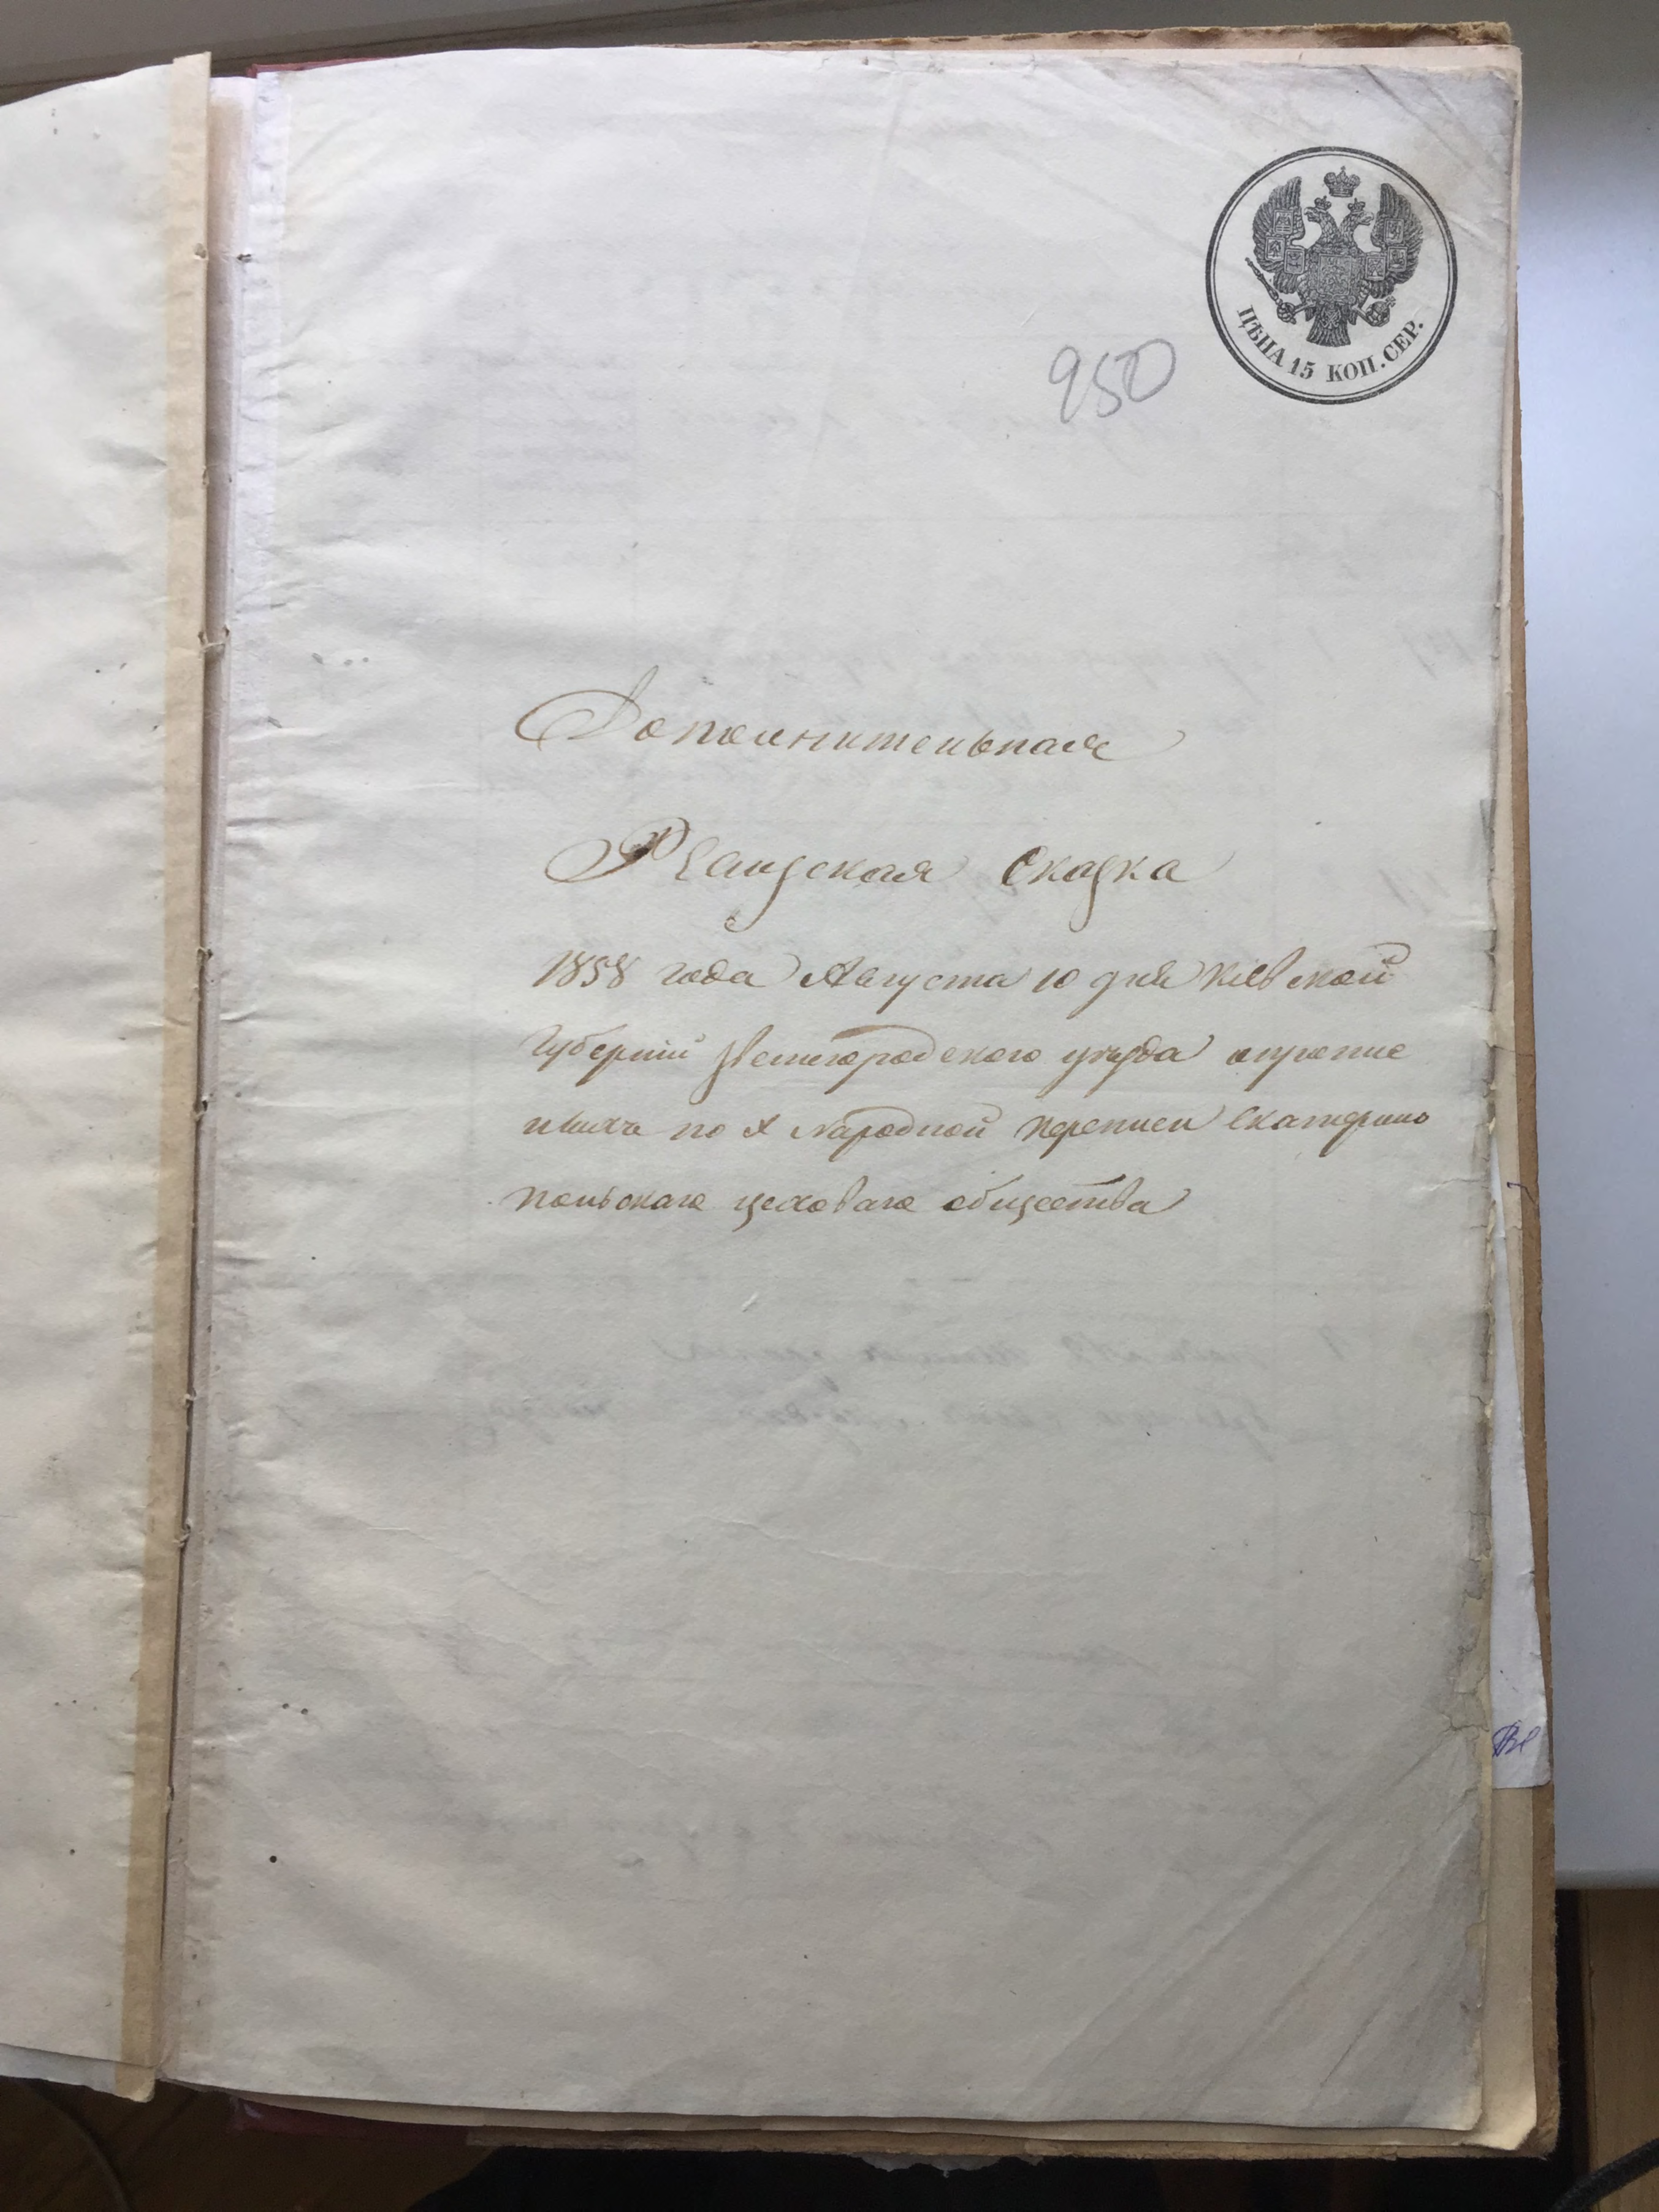 ЦѢНА 15 КОП. СЕР.
950
Дополнительная
Ревизская Сказка
1858 года Августа 10 дня Кіевской
Губерніи Звенигородского уезда опропе
ныхъ по X Народной переписи Екатерино
польскаго цеховаго общества